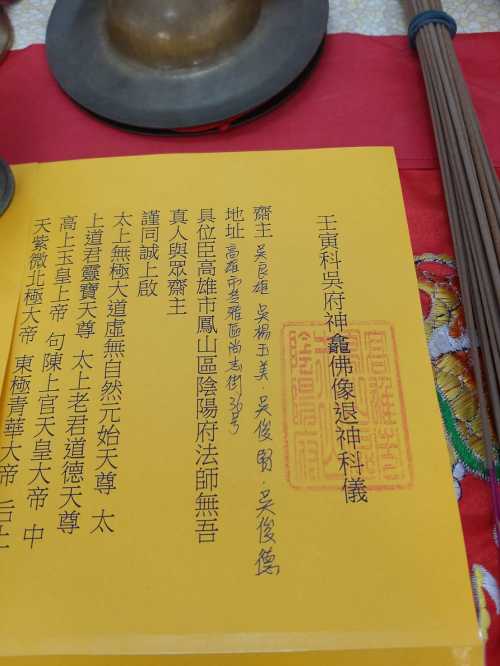 壬寅科吳府神龕佛像退神科儀
齋主 吳良雄．吳楊玉美．吳俊賢．吳俊德
地址 高雄市苓雅區尚志街36号
具位臣高雄市鳳山區陰陽府法師無吾
真人與眾齋主
謹同誠上啟
太上無極大道虛無自然元始天尊 太
上道君靈寶天尊 太上老君道德天尊
高上玉皇上帝 句陳上宮天皇大帝 中
天紫微北極大帝 東極青華大帝 后土